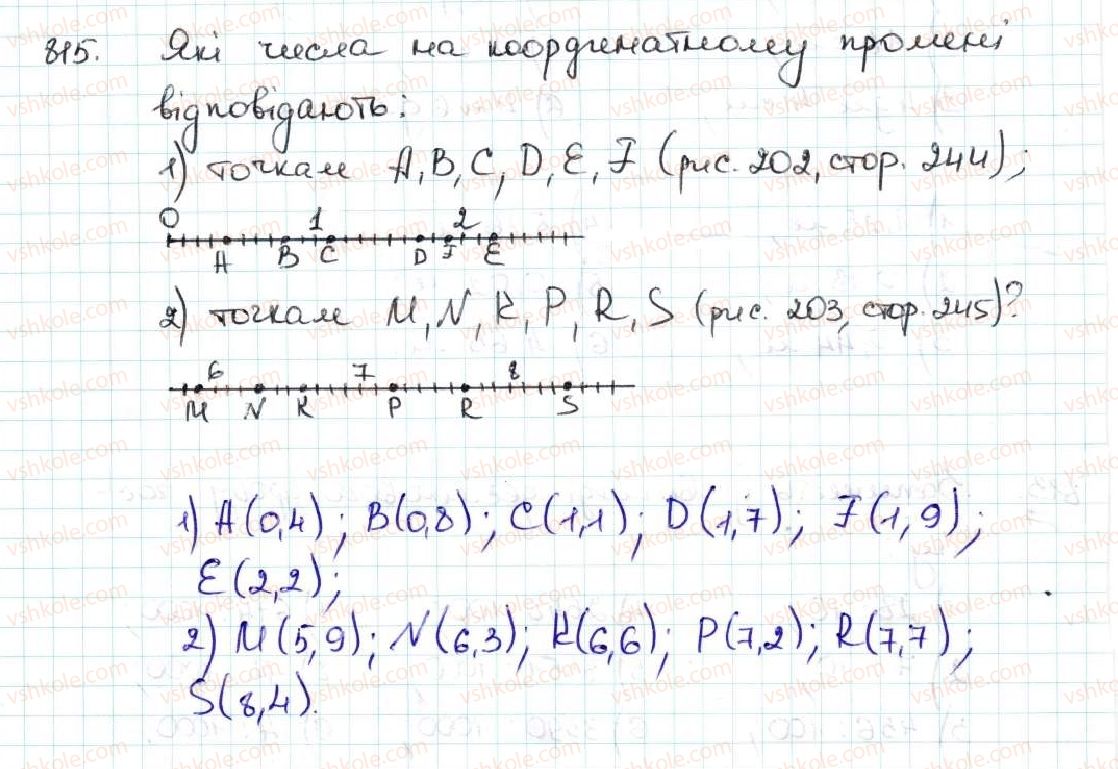 815. Які числа на координатному промені
відповідають:
1) точкам A, B, C, D, E, F (рис. 202, стор. 244);
0 1 2
A B C D F E
2) точкам M, N, K, P, R, S (рис. 203, стор. 245)?
6 7 8
M N K P R S
1) A(0,4); B(0,8); C(1,1); D(1,7); F(1,9);
E(2,2);
2) M(5,9); N(6,3); K(6,6); P(7,2); R(7,7);
S(8,4).
vshkole.com